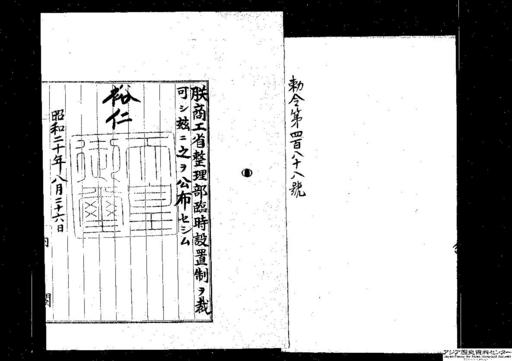 勅令第四百八十八號
朕商工省整理部臨時設置制ヲ裁
可シ茲ニ之ヲ公布セシム
裕仁
天皇御璽
昭和二十年八月二十六日
内閣
アジア歴史資料センター